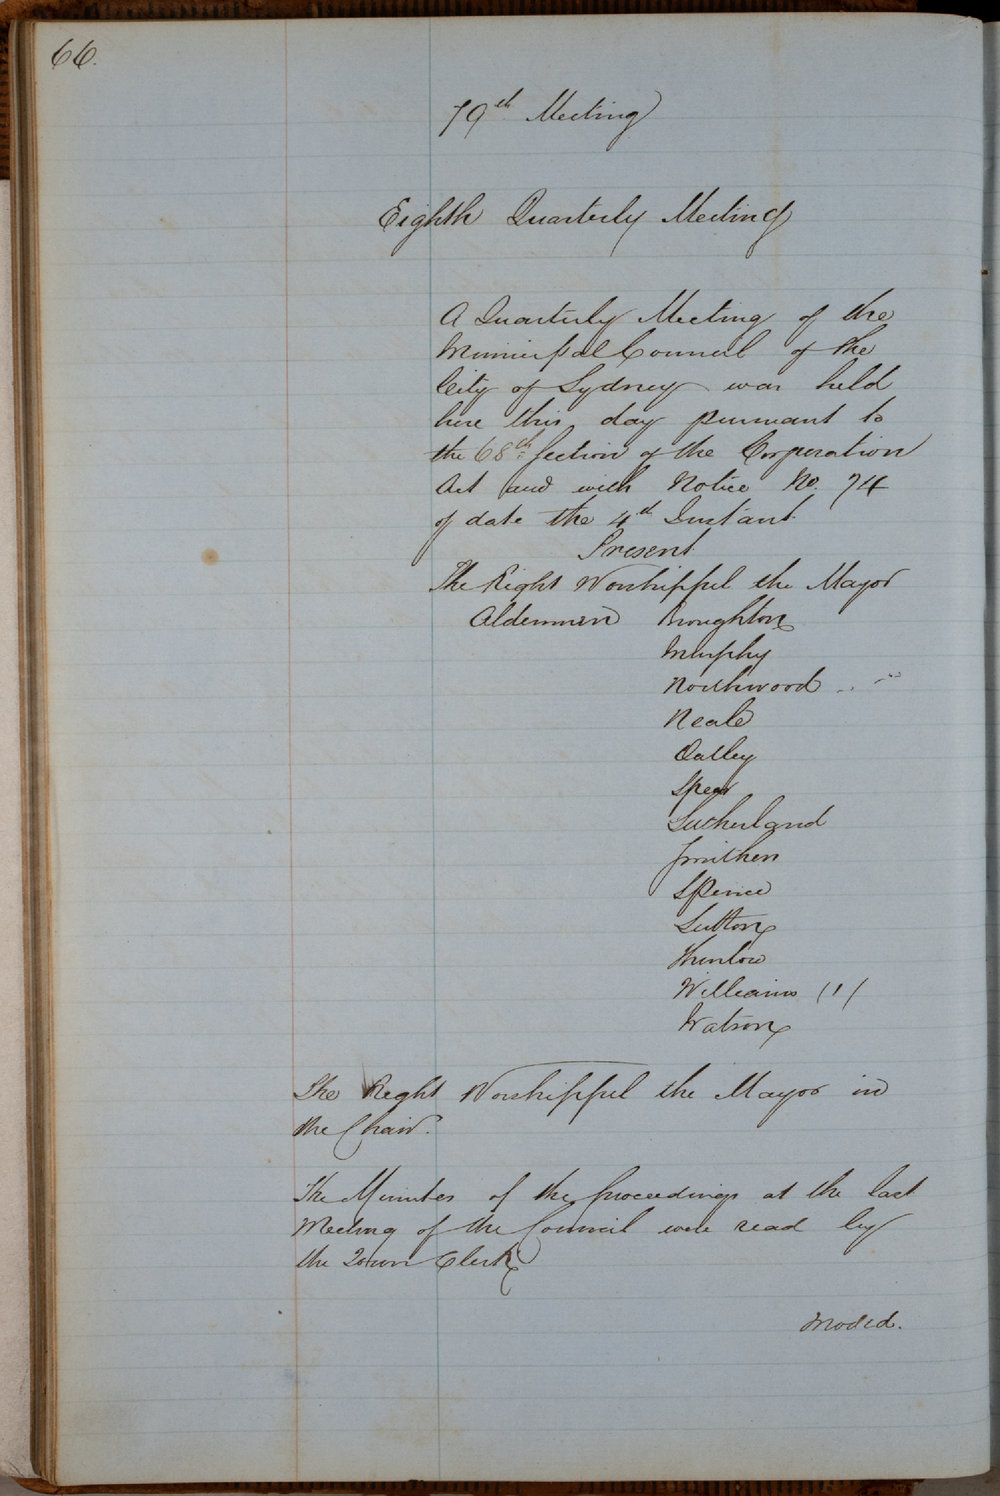 66.
79th Meeting
Eighth Quarterly Meeting
A Quarterly Meeting of the
Municipal Council of the
City of Sydney was held
here this day pursuant to
the 68th Section of the Corporation
Act and with Notice No. 74
of date the 4th Instant.
Present
The Right Worshipful the Mayor
Aldermen Broughton
Murphy
Northwood
Neale
Oatley
Spear
Sutherland
Smithers
Spence
Sutton
Thurlow
Williams (1)
Watson
The Right Worshipful the Mayor in
the Chair.
The Minutes of the proceedings at the last
Meeting of the Council were read by
the Town Clerk
Moved.